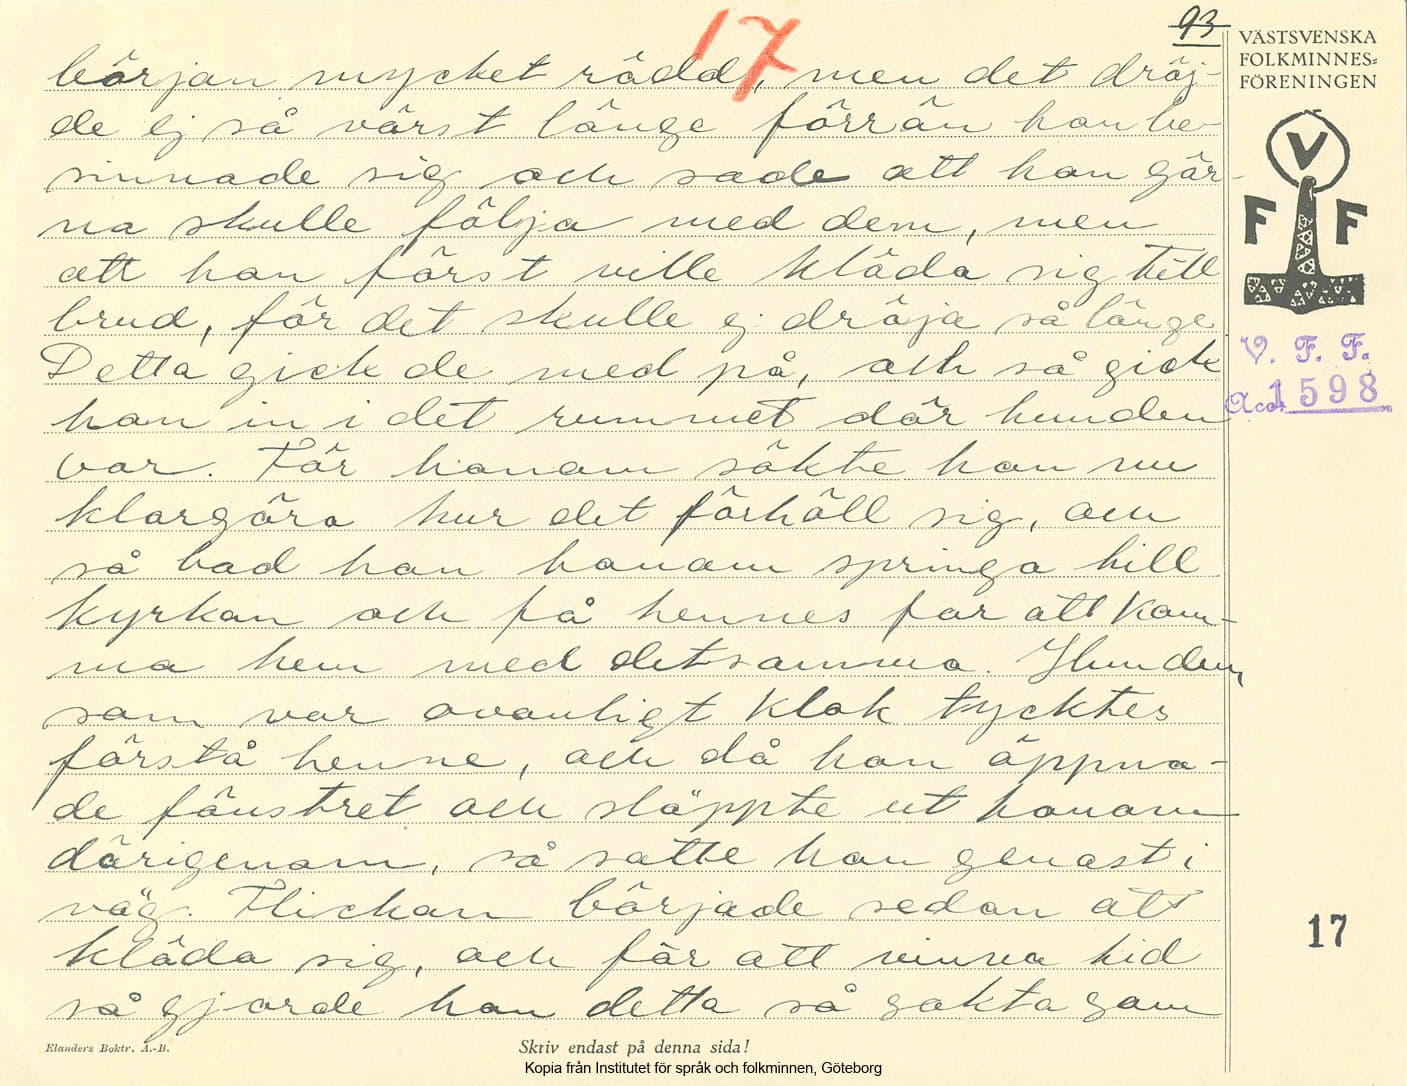 17
93
VÄSTSVENSKA
FOLKMINNES=
FÖRENINGEN
början mycket rädd, men det dröj-
de ej så värst länge förrän hon be-
sinnade sig och sade att hon gär-
na skulle följa med dem, men
att hon först ville kläda sig till
brud, för det skulle ej dröja så länge.
Detta gick de med på, och så gick
hon in i det rummet där hunden
var. För honom sökte hon nu
klargöra hur det förhöll sig, och
så bad hon honom springa till
kyrkan och få hennes far att kom-
ma hem med detsamma. Hunden,
som var ovanligt klok tycktes
förstå henne, och då hon öppna-
de fönstret och släppte ut honom
därigenom, så satte han genast i
väg. Flickan började sedan att
kläda sig, och för att vinna tid
så gjorde hon detta så sakta som
V
F F
V. F. F.
Acc. 1598
17
Elanders Boktr. A.-B.
Skriv endast på denna sida!
Kopia från Institutet för språk och folkminnen, Göteborg